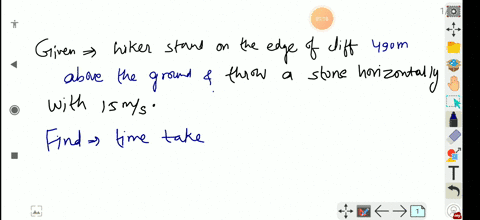 Given ⇒ hiker stand on the edge of cliff 490m
above the ground & throw a stone horizontally
with 15 m/s.
Find ⇒ time take